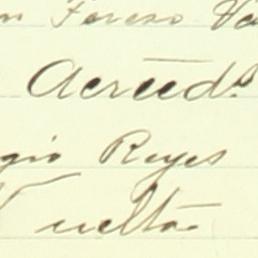 n Foreso Va
Acreeds
gio Reyes
Vuelta